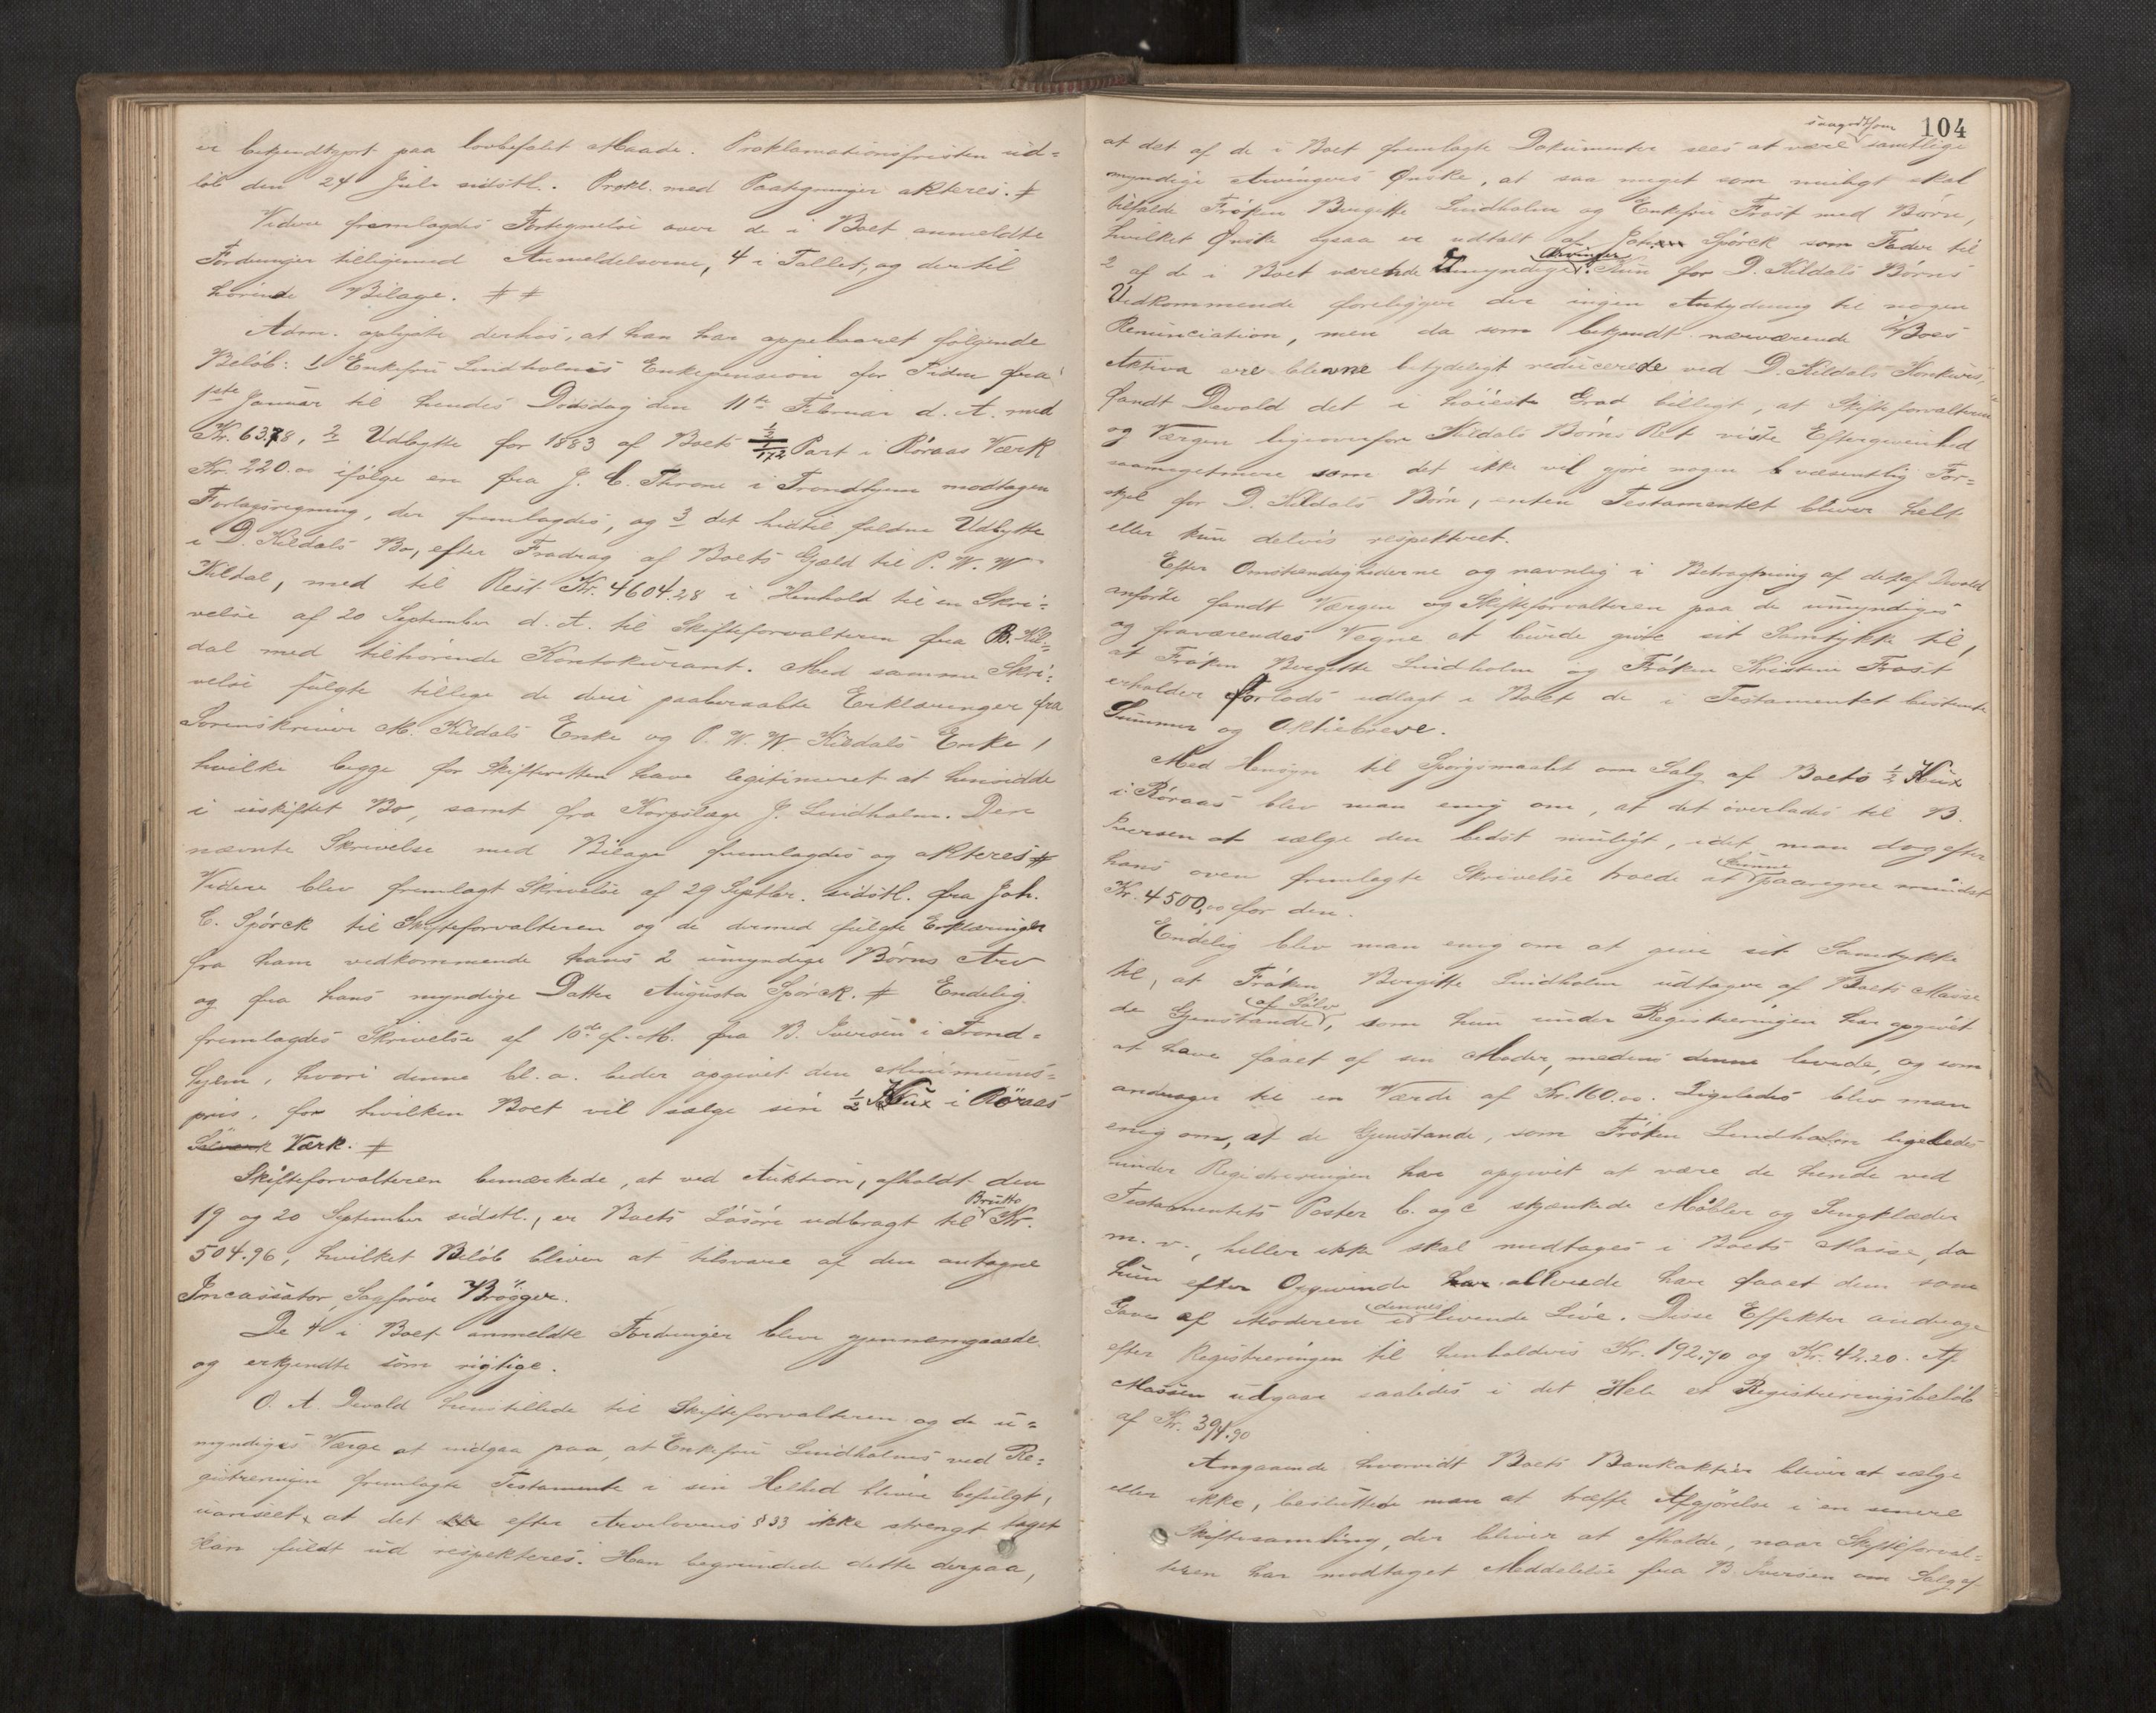 er bekjendtgjort paa lovbefalet Maade. Proklamationsfristen ud-
løb den 24 Juli sidstl. Prokl. med Paategninger akteres. #
Videre fremlagdes Fortegnelse over de i Boet anmeldte
Fordringer tilligemed Anmeldelserne, 4 i Tallet, og dertil
hørende Bilage. # #
Adm. oplyste derhos, at han har oppebaaret følgende
Beløb: 1 Enkefru Lindholms Enkepension for Tiden fra
1ste Januar til hendes Dødsdag den 11te Februar d. A. med
Kr. 63.78, 2 Udbytte for 1883 af Boets 1/2/172 Part i Røraas Værk
Kr. 220.00 ifølge en fra J. C. Throne i Trondhjem modtagen
Forlagsregning, der fremlagdes, og 3 det hidtil faldne Udbytte
i D. Kildals Bo, efter Fradrag af Boets Gjæld til P. W. W.
Kildal, med til Rest Kr. 4604.28 i Henhold til en Skri-
velse af 20 September d. A. til Skifteforvalteren fra B. Kil-
dal med tilhørende Kontokurant. Med samme Skri-
velse fulgte tillige de deri paaberaabte Erklæringer fra
Sorenskriver M. Kildals Enke og P. W. W. Kildals Enke,
hvilke begge for Skifteretten have legitimeret at hensidde
i uskiftet Bo, samt fra Korpslæge J. Lindholm. Den
nævnte Skrivelse med Bilage fremlagdes og akteres #
Videre blev fremlagt Skrivelse af 29 Septbr. sidstl. fra Joh.
C. Spørck til Skifteforvalteren og de dermed fulgte Erklæringer
fra ham vedkommende hans 2 umyndige Børns Arv
og fra hans myndige Datter Augusta Spørck. # Endelig
fremlagdes Skrivelse af 10de f. M. fra B. Iversen i Trond-
hjem, hvori denne bl. a. beder opgivet den Minimums-
pris, for hvilken Boet vil sælge sin 1/2 Kux i Røraas
Værk. #
Skifteforvalteren bemærkede, at ved Auktion, afholdt den
19 og 20 September sidstl., er Boets Løsøre udbragt til Brutto Kr.
504.96, hvilket Beløb bliver at tilsvare af den antagne
Incassator, Sagfører Brøgger.
De 4 i Boet anmeldte Fordringer bleve gjennemgaaede
og erkjendte som rigtige.
O. A. Devold henstillede til Skifteforvalteren og de u-
myndiges Værge at indgaa paa, at Enkefru Lindholms ved Re-
gistreringen fremlagte Testamente i sin Helhed bliver befulgt,
uanseet, at det efter Arvelovens § 33 ikke strengt taget
kan fuldt ud respekteres. Han begrundede dette derpaa,
104
at det af de i Boet fremlagte Dokumenter sees at være saagodtsom samtlige
myndige Arvingers Ønske, at saa meget som muligt skal
tilfalde Frøken Bergitte Lindholm og Enkefru Frost med Børn,
hvilket Ønske ogsaa er udtalt af Joh. Spørck som Fader til
2 af de i Boet værende umyndige Arvinger. Kun for D. Kildals Børns
Vedkommende foreligger der ingen Antydning til nogen
Renunciation, men da som bekjendt nærværende Boes
Aktiva ere blevne betydeligt reducerede ved D. Kildals Konkurs,
fandt Devold det i høieste Grad billigt, at Skifteforvalteren
og Værgen ligeoverfor Kildals Børns Ret viste Eftergivenhed
saameget mere som det ikke vil gjøre nogen væsentlig For-
skjel for D. Kildals Børn, enten Testamentet bliver helt
eller kun delvis respekteret.
Efter Omstændighederne og navnlig i Betragtning af det af Devold
anførte fandt Værgen og Skifteforvalteren paa de umyndiges
og fraværendes Vegne at burde give sit Samtykke til,
at Frøken Bergitte Lindholm og Frøken Kristine Frost
erholder forlods udlagt i Boet de i Testamentet bestemte
Summer og Aktiebreve.
Med Hensyn til Spørgsmaalet om Salg af Boets 1/2 Kux
i Røraas blev man enig om, at det overlades til B.
Iversen at sælge den bedst muligt, idet man dog efter
hans oven fremlagte Skrivelse troede at kunne paaregne mindst
Kr. 4500,00 for den.
Endelig blev man enig om at give sit Samtykke
til, at Frøken Bergitte Lindholm udtager af Boets Masse
de Gjenstande af Sølv, som hun under Registreringen har opgivet
at have faaet af sin Moder, medens denne levede, og som
andrager til en Værdi af Kr. 160.00. Ligeledes blev man
enig om, at de Gjenstande, som Frøken Lindholm ligeledes
under Registreringen har opgivet at være de hende ved
Testamentets Poster b. og c skjænkede Møbler og Sengklæder
m. v., heller ikke skal medtages i Boets Masse, da
hun efter Opgivende allerede har faaet dem som
Gave af Moderen i dennes levende Live. Disse Effekter andrage
efter Registreringen til henholdsvis Kr. 192.70 og Kr. 42.20. Af
Massen udgaar saaledes i det Hele et Registreringsbeløb
af Kr. 394.90
Angaaende hvorvidt Boets Bankaktier bliver at sælge
eller ikke, besluttede man at træffe Afgjørelse i en senere
Skiftesamling, der bliver at afholde, naar Skifteforval-
teren har modtaget Meddelelse fra B. Iversen om Salg af